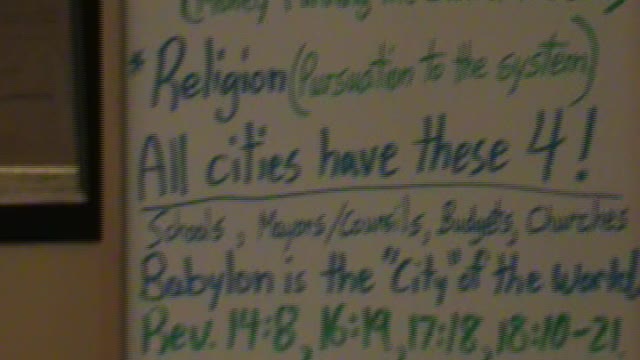 (Money
* Religion (Pursuation to the system)
All cities have these 4!
Schools, Mayors/Councils, Budgets, Churches
Babylon is the "City" of the World
Rev. 14:8, 16:19, 17:18, 18:10-21